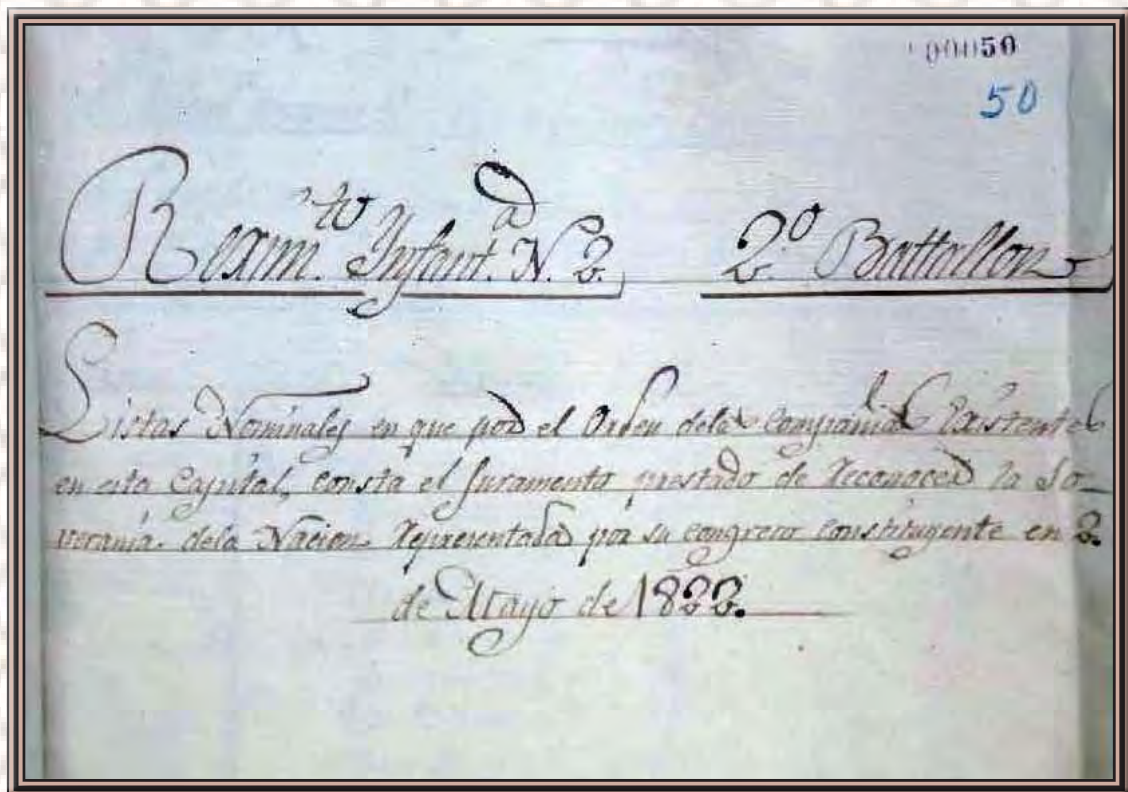 00050
50
Rexim.to Infant.a N. 2. 2º Battallon
Listas Nominales en que por el Orden dela Compañias Existentes
en esta Capital, consta el Juramento prestado de Reconocer la So-
verania dela Nacion Representada por su congreso constituyente en 2.
de Mayo de 1822.